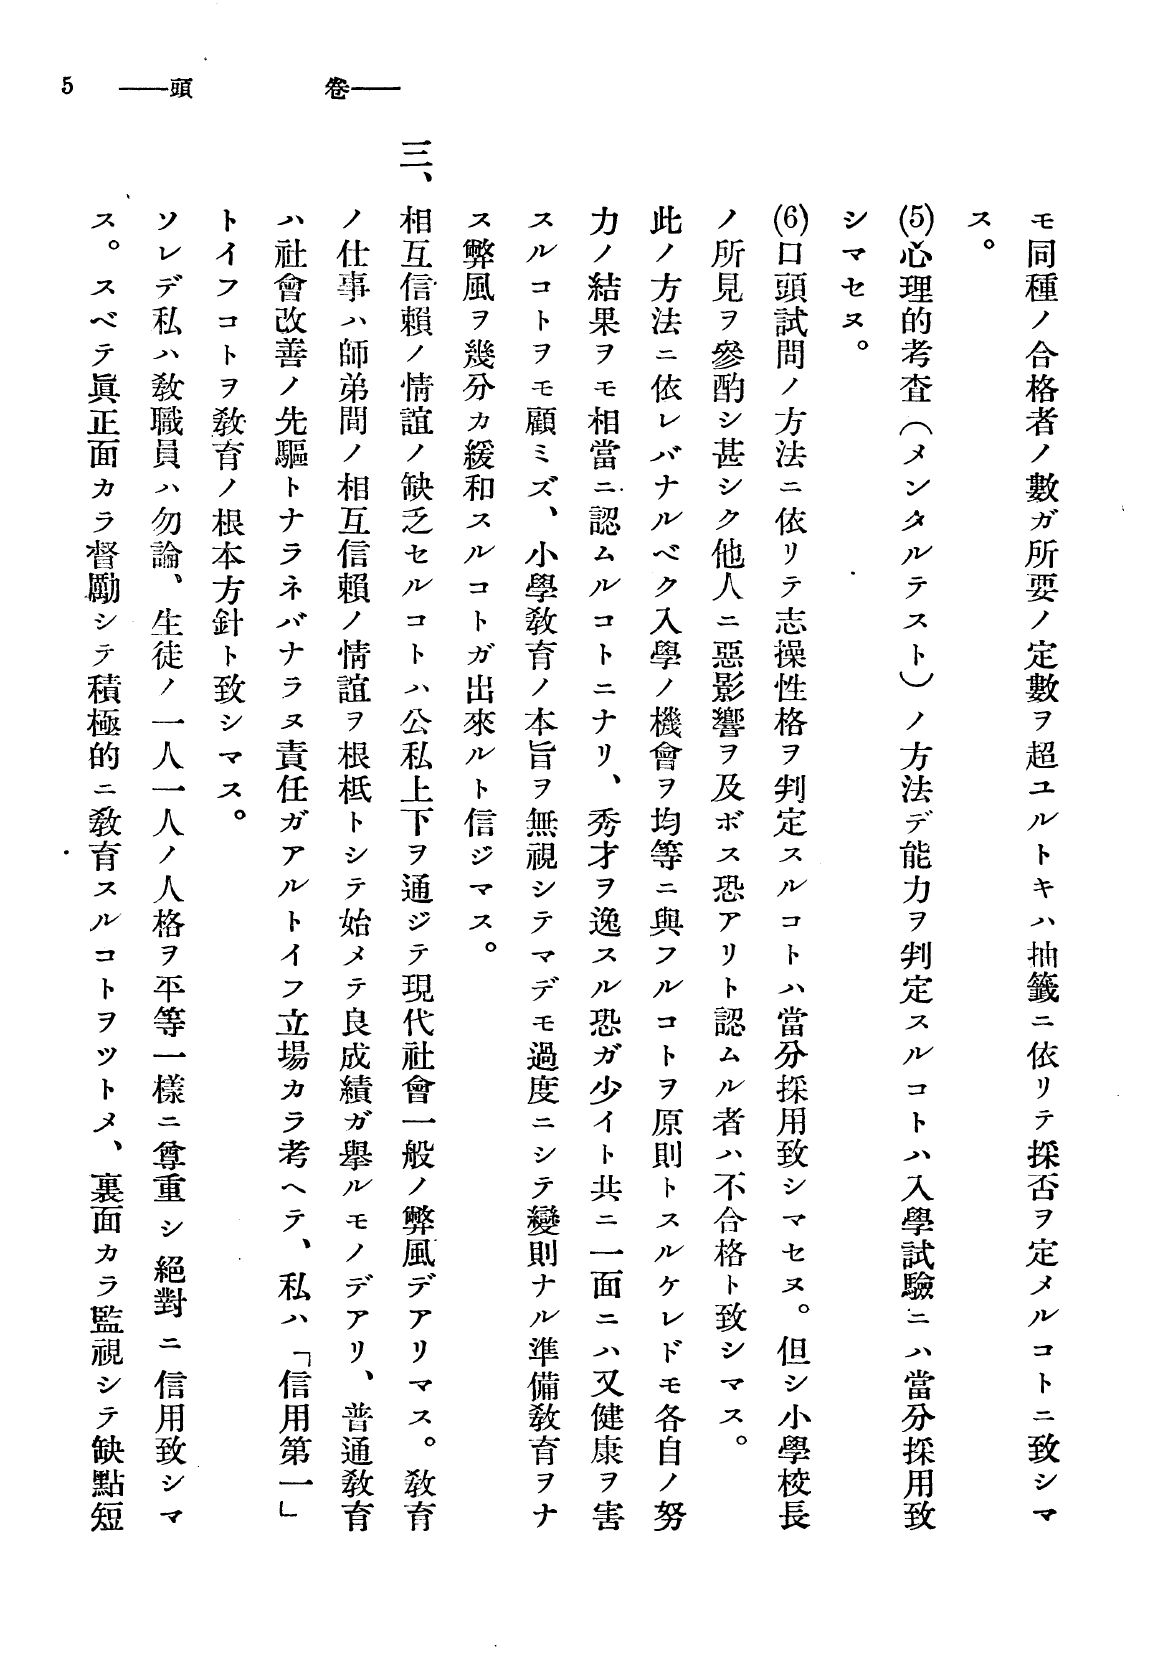 5 ——頭 卷——
モ同種ノ合格者ノ數ガ所要ノ定數ヲ超ユルトキハ抽籤ニ依リテ採否ヲ定メルコトニ致シマ
ス。
(5)心理的考査(メンタルテスト)ノ方法デ能力ヲ判定スルコトハ入學試驗ニハ當分採用致
シマセヌ。
(6)口頭試問ノ方法ニ依リテ志操性格ヲ判定スルコトハ當分採用致シマセヌ。但シ小學校長
ノ所見ヲ參酌シ甚シク他人ニ惡影響ヲ及ボス恐アリト認ムル者ハ不合格ト致シマス。
此ノ方法ニ依レバナルベク入學ノ機會ヲ均等ニ與フルコトヲ原則トスルケレドモ各自ノ努
力ノ結果ヲモ相當ニ認ムルコトニナリ、秀才ヲ逸スル恐ガ少イト共ニ一面ニハ又健康ヲ害
スルコトヲモ顧ミズ、小學敎育ノ本旨ヲ無視シテマデモ過度ニシテ變則ナル準備敎育ヲナ
ス弊風ヲ幾分カ緩和スルコトガ出來ルト信ジマス。
三、相互信賴ノ情誼ノ缺乏セルコトハ公私上下ヲ通ジテ現代社會一般ノ弊風デアリマス。敎育
ノ仕事ハ師弟間ノ相互信賴ノ情誼ヲ根柢トシテ始メテ良成績ガ擧ルモノデアリ、普通敎育
ハ社會改善ノ先驅トナラネバナラヌ責任ガアルトイフ立場カラ考ヘテ、私ハ「信用第一」
トイフコトヲ敎育ノ根本方針ト致シマス。
ソレデ私ハ敎職員ハ勿論、生徒ノ一人一人ノ人格ヲ平等一樣ニ尊重シ絕對ニ信用致シマ
ス。スベテ眞正面カラ督勵シテ積極的ニ敎育スルコトヲツトメ、裏面カラ監視シテ缺點短